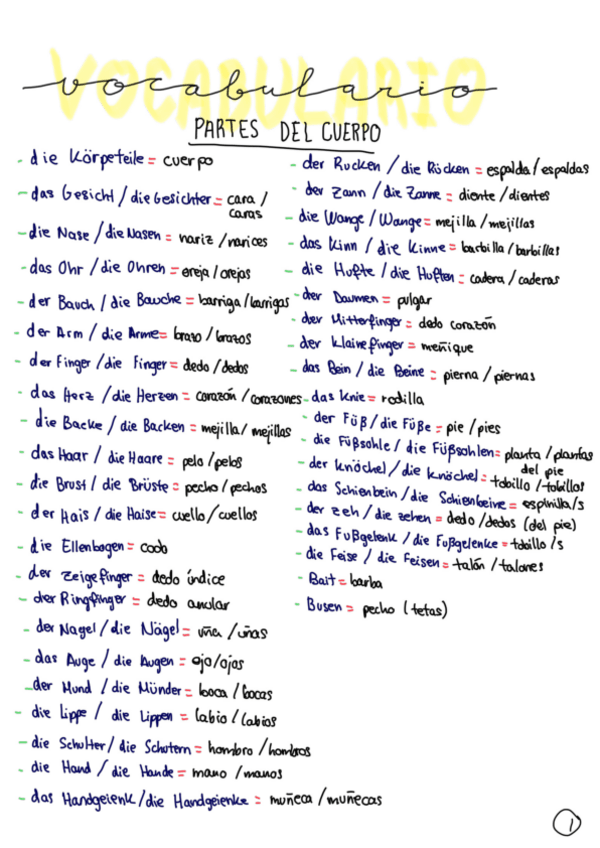 VOCABULARIO
vocabulario
PARTES DEL CUERPO
- die Körpeteile = cuerpo
- das Gesicht / die Gesichter = cara /
caras
- die Nase / die Nasen = nariz / narices
- das Ohr / die Ohren = oreja / orejas
- der Bauch / die Bauche = barriga / barrigas
- der Arm / die Arme = brazo / brazos
- der Finger / die Finger = dedo / dedos
- das Herz / die Herzen = corazón / corazones
- die Backe / die Backen = mejilla / mejillas
- das Haar / die Haare = pelo / pelos
- die Brust / die Brüste = pecho / pechos
- der Hais / die Haise = cuello / cuellos
- die Ellenbogen = codo
- der Zeigefinger = dedo índice
- der Ringfinger = dedo anular
- der Nagel / die Nägel = uña / uñas
- das Auge / die Augen = ojo / ojos
- der Mund / die Münder = boca / bocas
- die Lippe / die Lippen = labio / labios
- die Schulter / die Schutern = hombro / hombros
- die Hand / die Hande = mano / manos
- das Handgeienk / die Handgeienke = muñeca / muñecas
- der Rucken / die Rücken = espalda / espaldas
- der Zann / die Zanne = diente / dientes
- die Wange / Wange = mejilla / mejillas
- das Kinn / die Kinne = barbilla / barbillas
- die Hufte / die Huften = cadera / caderas
- der Daumen = pulgar
- der Mitterfinger = dedo corazón
- der Klainefinger = meñique
- das Bein / die Beine = pierna / piernas
- das Knie = rodilla
- der Füß / die Füße = pie / pies
- die Füßsohle / die Füßsohlen = planta / plantas
del pie
- der Knöchel / die Knöchel = tobillo / tobillos
- das Schienbein / die Schienbeine = espinilla/s
- der Zeh / die Zehen = dedo / dedos (del pie)
- das Fußgelenk / die Fußgelenke = tobillo /s
- die Feise / die Feisen = talón / talones
- Bait = barba
- Busen = pecho (tetas)
1